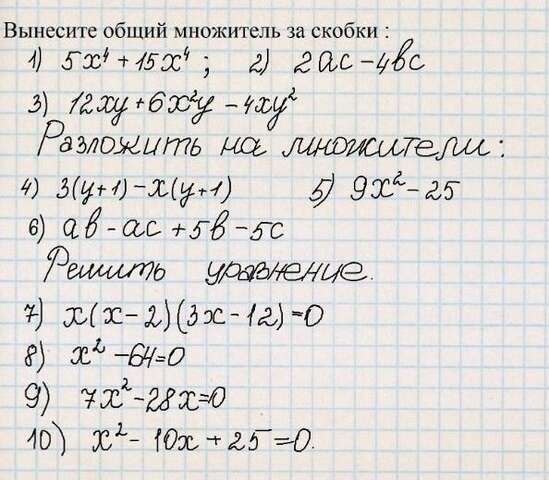 Вынесите общий множитель за скобки :
1) 5x⁴ + 15x⁴ ; 2) 2ac – 4bc
3) 12xy + 6x²y – 4xy²
Разложить на множители:
4) 3(y+1) – x(y+1) 5) 9x² – 25
6) ab – ac + 5b – 5c
Решить уравнение.
7) x(x – 2)(3x – 12) = 0
8) x² – 64 = 0
9) 7x² – 28x = 0
10) x² – 10x + 25 = 0.